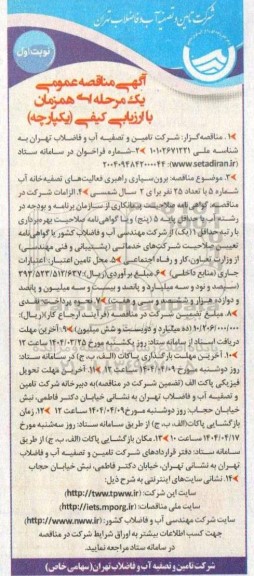 شرکت تامین و تصفیه آب و فاضلاب تهران
نوبت اول
آگهی مناقصه عمومی
یک مرحله ای همزمان
با ارزیابی کیفی (یکپارچه)
۱. مناقصه‌گزار: شرکت تامین و تصفیه آب و فاضلاب تهران به
شناسه ملی ۱۰۱۰۲۶۷۱۲۲۱ ۲-شماره فراخوان در سامانه ستاد
(www.setadiran.ir): ۲۰۰۴۰۹۴۸۳۲۰۰۰۰۴۴
۳. موضوع مناقصه: برون‌سپاری راهبری فعالیت‌های تصفیه‌خانه آب
شماره ۵ با تعداد ۲۵ نفر برای ۲ سال شمسی ۴. الزامات شرکت در
مناقصه: گواهی نامه صلاحیت پیمانکاری از سازمان برنامه و بودجه در
رشته آب با حداقل پایه ۵ (پنج) و یا گواهی نامه صلاحیت بهره‌برداری
با رتبه حداقل ۱ (یک) از شرکت مهندسی آب و فاضلاب کشور یا گواهی‌نامه
تعیین صلاحیت شرکت‌های خدماتی (پشتیبانی و فنی مهندسی)
از وزارت تعاون، کار و رفاه اجتماعی ۵. محل تامین اعتبار: اعتبارات
جاری (منابع داخلی) ۶. مبلغ برآوردی (ریال): ۳۹۳/۵۲۳/۵۱۲/۶۳۷
(سیصد و نود و سه میلیارد و پانصد و بیست و سه میلیون و پانصد
و دوازده هزار و ششصد و سی و هفت) ۷. نحوه پرداخت: نقدی
۸. مبلغ تضمین شرکت در مناقصه (فرآیند ارجاع کار) (ریال):
۱۰/۲۰۶/۰۰۰/۰۰۰ (ده میلیارد و دویست و شش میلیون) ۹. آخرین مهلت
دریافت اسناد از سامانه ستاد: روز یکشنبه مورخ ۱۴۰۴/۰۳/۲۵ ساعت ۱۲
۱۰. آخرین مهلت بارگذاری پاکات (الف، ب، ج) در سامانه ستاد:
روز دوشنبه مورخ ۱۴۰۴/۰۴/۰۹ ساعت ۱۲ ۱۱. آخرین مهلت تحویل
فیزیکی پاکت الف (تضمین شرکت در مناقصه) به دبیرخانه شرکت تامین
و تصفیه آب و فاضلاب تهران به نشانی خیابان دکتر فاطمی، نبش
خیابان حجاب: روز دوشنبه مورخ ۱۴۰۴/۰۴/۰۹ ساعت ۱۲ ۱۲. زمان
بازگشایی پاکات (الف، ب، ج) از طریق سامانه ستاد: روز سه‌شنبه مورخ
۱۴۰۴/۰۴/۱۷ ساعت ۱۰ ۱۳. مکان بازگشایی پاکات (الف، ب، ج) از طریق
سامانه ستاد: دفتر قراردادهای شرکت تامین و تصفیه آب و فاضلاب
تهران به نشانی تهران، خیابان دکتر فاطمی، نبش خیابان حجاب
۱۴. نشانی سایت‌های اینترنتی به شرح ذیل:
سایت این شرکت: (http://tww.tpww.ir)
سایت ملی مناقصات: (http://iets.mporg.ir)
سایت شرکت مهندسی آب و فاضلاب کشور: (http://www.nww.ir)
جهت کسب اطلاعات بیشتر به اوراق شرایط شرکت در مناقصه
در سامانه ستاد مراجعه نمایید.
شرکت تامین و تصفیه آب و فاضلاب تهران (سهامی خاص)